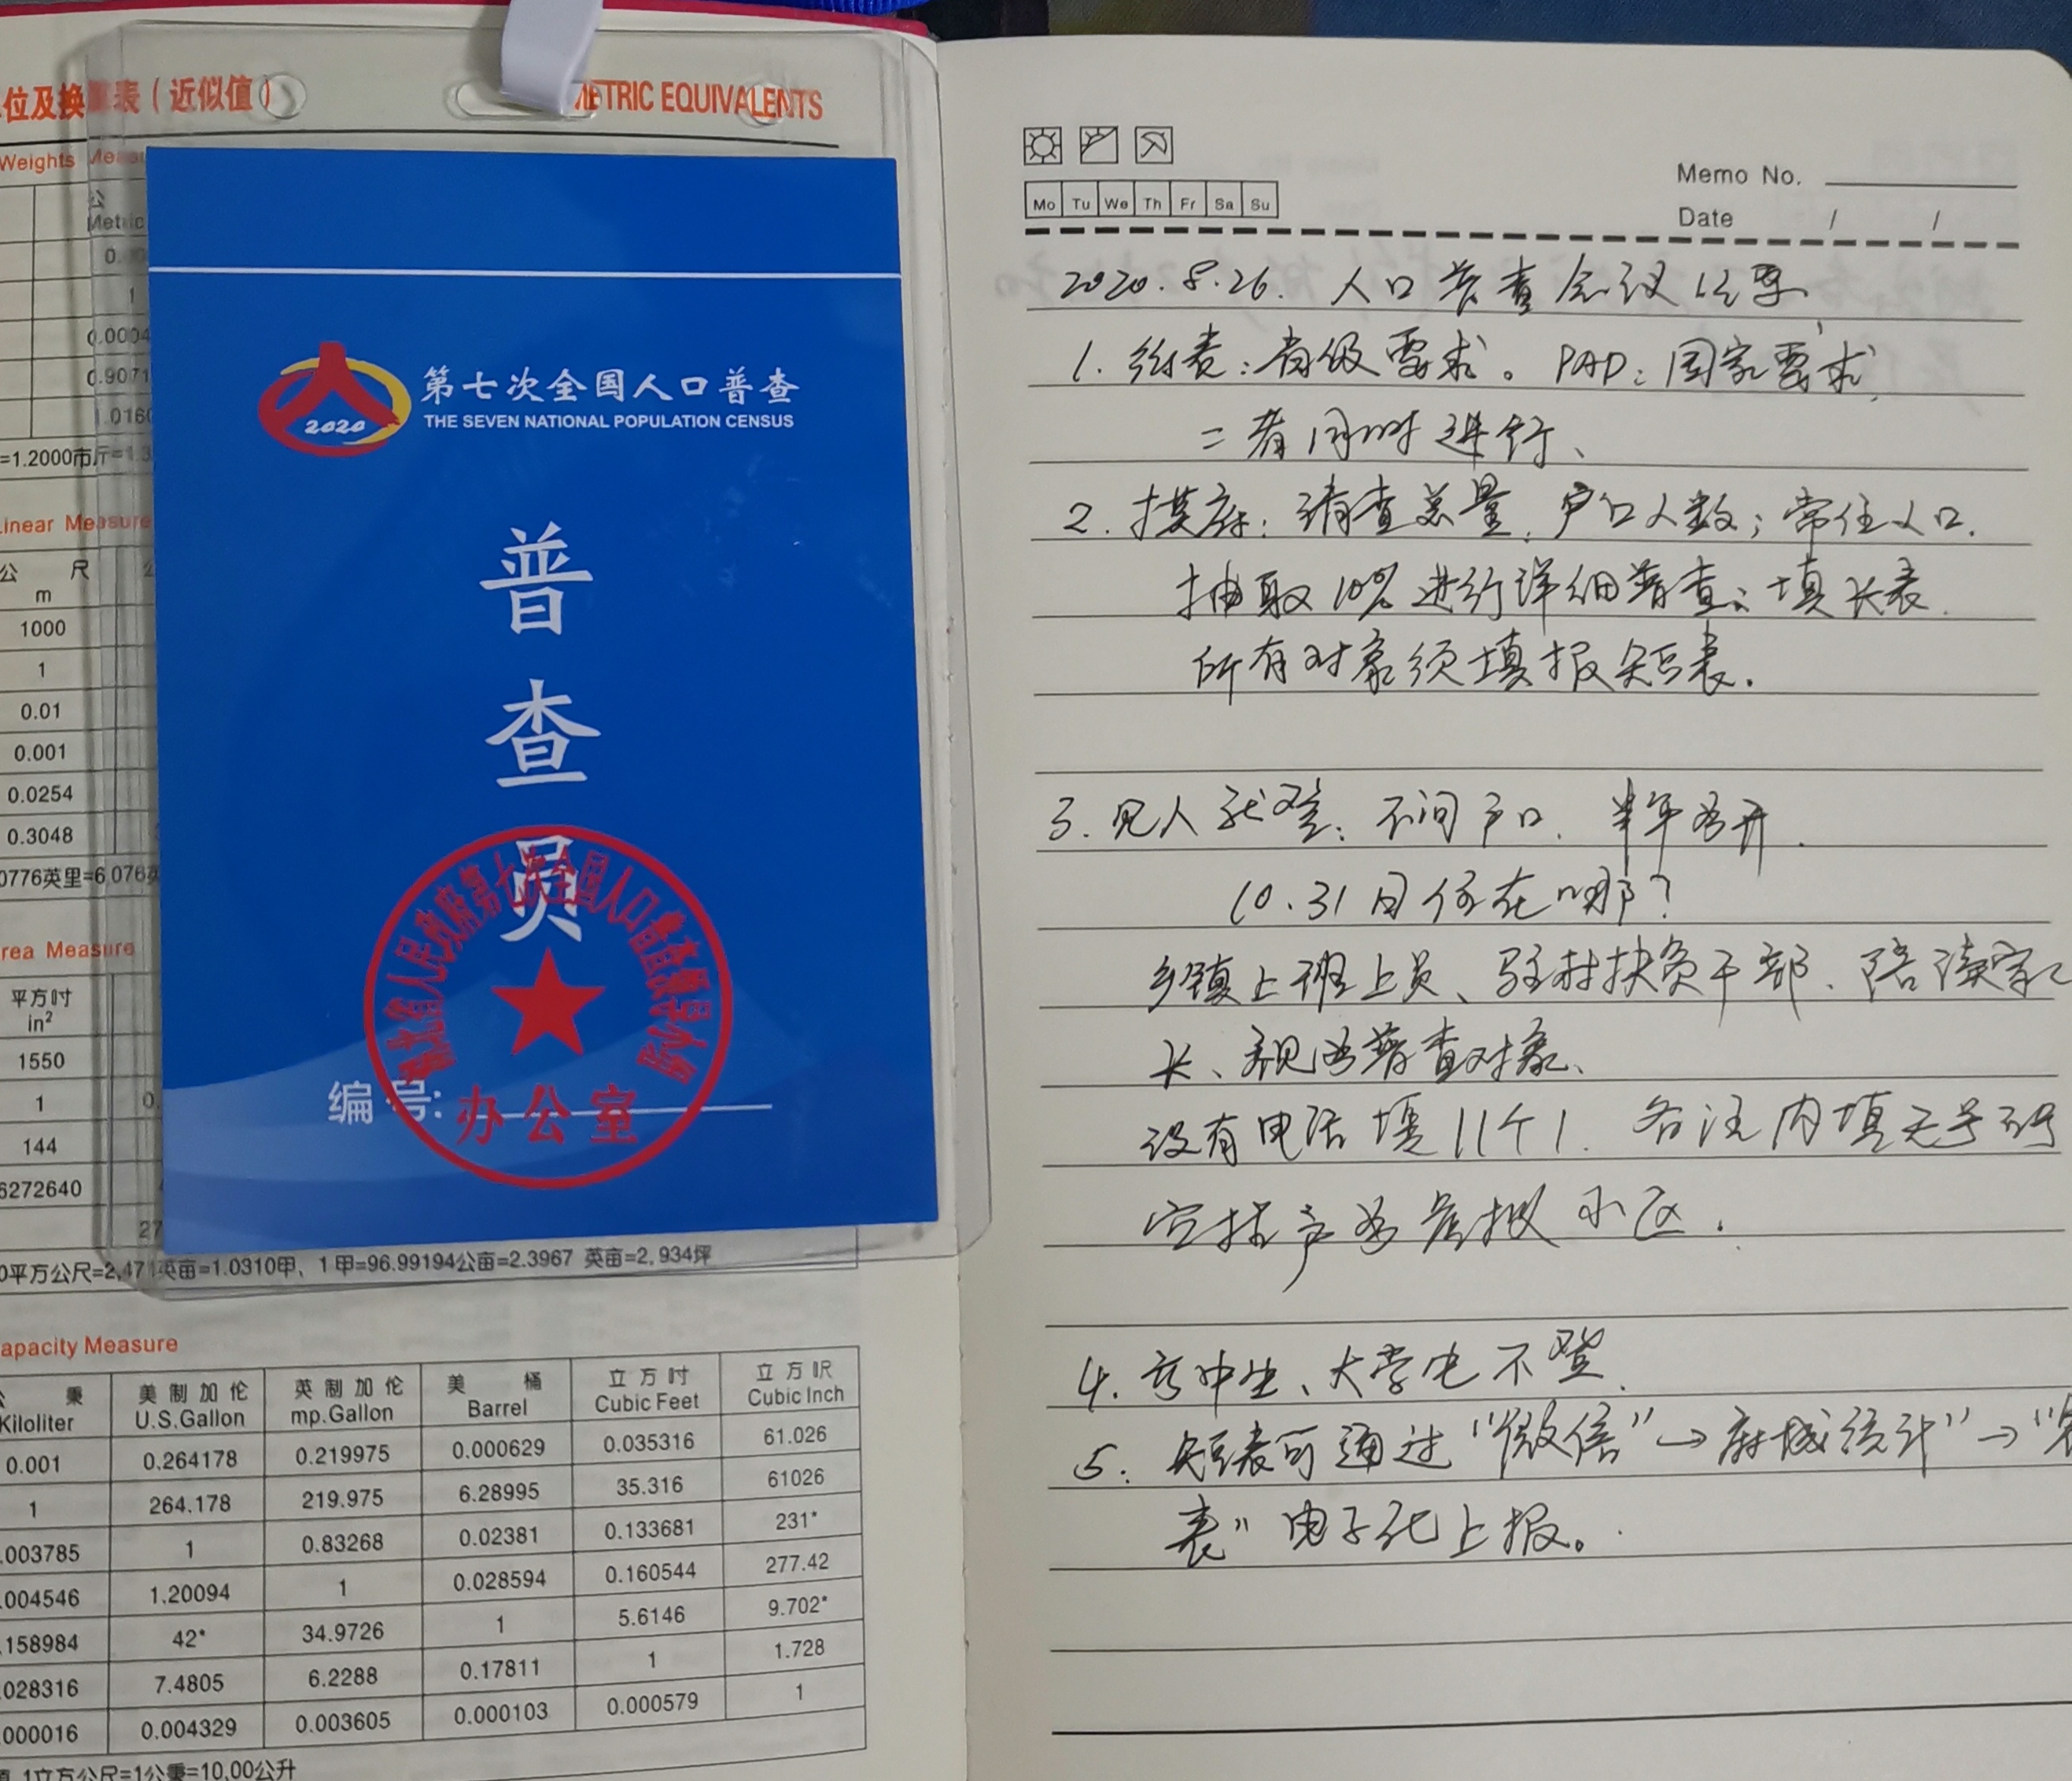 位及换算表（近似值）
METRIC EQUIVALENTS
Weights Measu
公
Metric
0.0004
0.9071
1.0160
=1.2000市斤=1.3
Linear Measure
公 尺
m
1000
1
0.01
0.001
0.0254
0.3048
0776英里=6,076英
rea Measure
平方吋
in²
1550
1
144
6272640
27
0平方公尺=2,471英亩=1.0310甲、1甲=96.99194公亩=2.3967 英亩=2,934坪
apacity Measure
秉 美制加伦 英制加伦 美桶 立方吋 立方呎
Kiloliter U.S.Gallon mp.Gallon Barrel Cubic Feet Cubic Inch
0.001 0.264178 0.219975 0.000629 0.035316 61.026
1 264.178 219.975 6.28995 35.316 61026
.003785 1 0.83268 0.02381 0.133681 231*
.004546 1.20094 1 0.028594 0.160544 277.42
.158984 42* 34.9726 1 5.6146 9.702*
.028316 7.4805 6.2288 0.17811 1 1.728
.000016 0.004329 0.003605 0.000103 0.000579 1
1立方公尺=1公秉=10,00公升
2020
第七次全国人口普查
THE SEVEN NATIONAL POPULATION CENSUS
普
查
员
湖北省人民政府第七次全国人口普查领导小组
编号:
办公室
Mo Tu We Th Fr Sa Su
Memo No.
Date / /
2020.8.26. 人口普查会议记录
1. 纸表：省级要求。PAD：国家要求
二者同时进行、
2. 摸底：清查总量，户口人数；常住人口.
抽取10%进行详细普查；填长表.
所有对象须填报短表.
3. 见人就登；不问户口. 半年为界.
10.31日住在哪？
乡镇上班上员、驻村扶贫干部、陪读家
长、亲见为普查对象、
没有电话填11个1. 备注内填无号码
空挂户为虚拟小区.
4. 高中生、大学生不登.
5. 短表可通过“微信”→麻城统计”→“
表” 电子化上报。